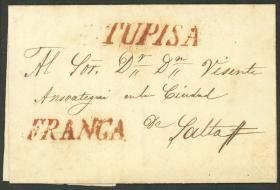 TUPISA
Al Sor. Dr. Dn. Visente
Ansoategui en la Ciudad
FRANCA de Salta